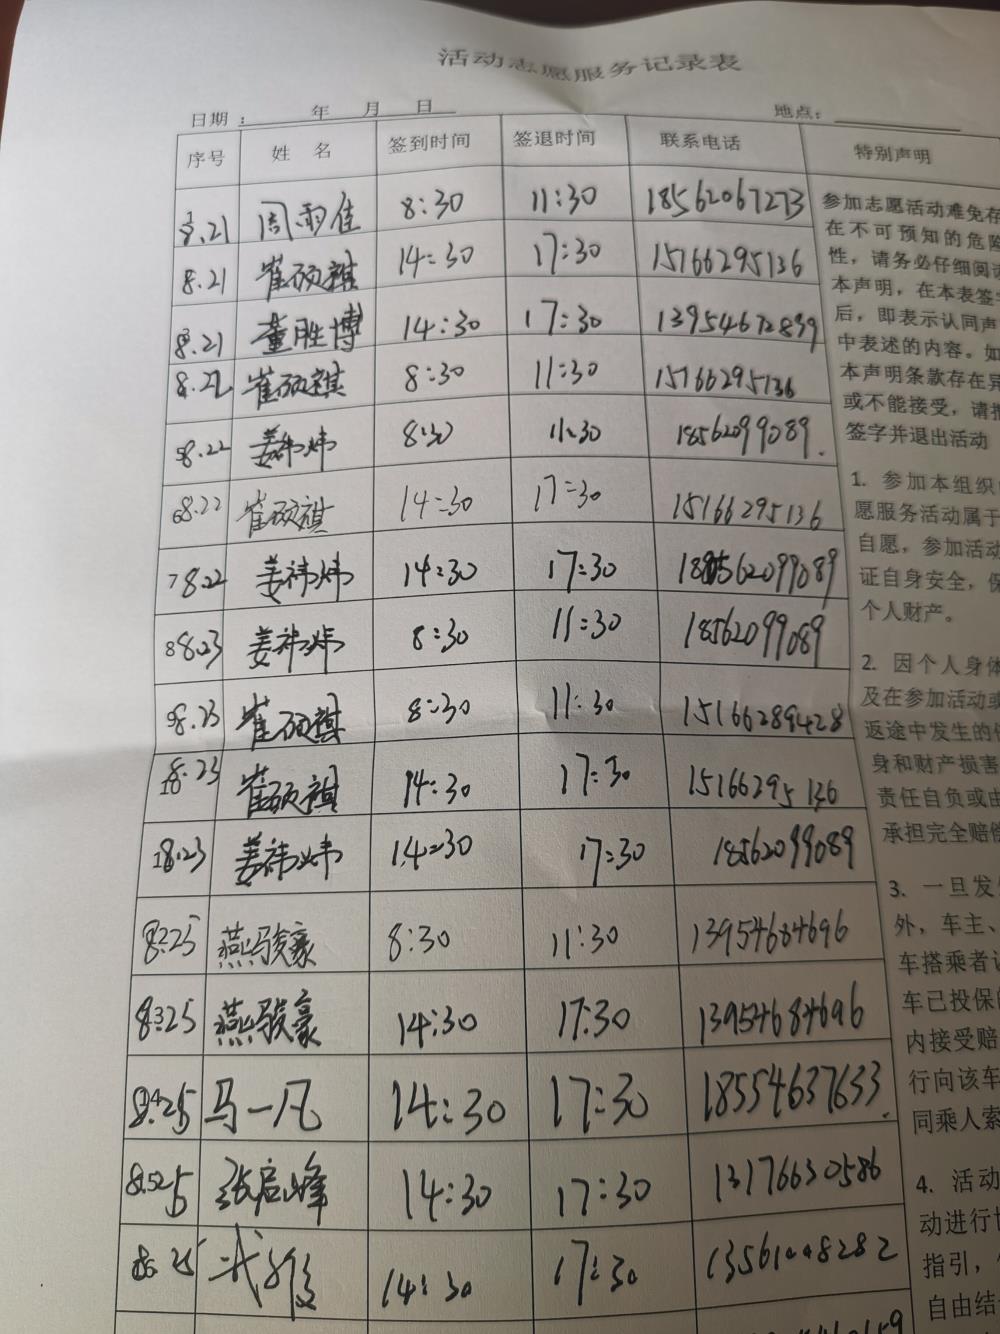 活动志愿服务记录表
日期： 年 月 日 地点：
序号 姓 名 签到时间 签退时间 联系电话 特别声明
8.21 周雨佳 8:30 11:30 18562067273
8.21 崔硕祺 14:30 17:30 15166295136
8.21 董胜博 14:30 17:30 13954672839
8.22 崔硕祺 8:30 11:30 15166295136
5 8.22 姜祎炜 8:30 11:30 18562099089.
6 8.22 崔硕祺 14:30 17:30 15166295136
7 8.22 姜祎炜 14:30 17:30 18562099089
8 8.23 姜祎炜 8:30 11:30 18562099089
9 8.23 崔硕祺 8:30 11:30 15166289428
10 8.23 崔硕祺 14:30 17:30 15166295136
8.23 姜祎炜 14:30 17:30 18562099089
8.25 燕骏豪 8:30 11:30 13954684696
8.25 燕骏豪 14:30 17:30 13954684696
8.25 马一凡 14:30 17:30 18554637633.
8.25 张启峰 14:30 17:30 13176630586
25 14:30 17:30
参加志愿活动难免存
在不可预知的危险
性，请务必仔细阅读
本声明，在本表签字
后，即表示认同声
中表述的内容。如
本声明条款存在异
或不能接受，请拒
签字并退出活动
1. 参加本组织
愿服务活动属于
自愿，参加活动
证自身安全，保
个人财产。
2. 因个人身体
及在参加活动或
返途中发生的
身和财产损害
责任自负或由
承担完全赔偿
3. 一旦发
外，车主、
车搭乘者
车已投保的
内接受赔
行向该车
同乘人索
4. 活动
动进行
指引，
自由结